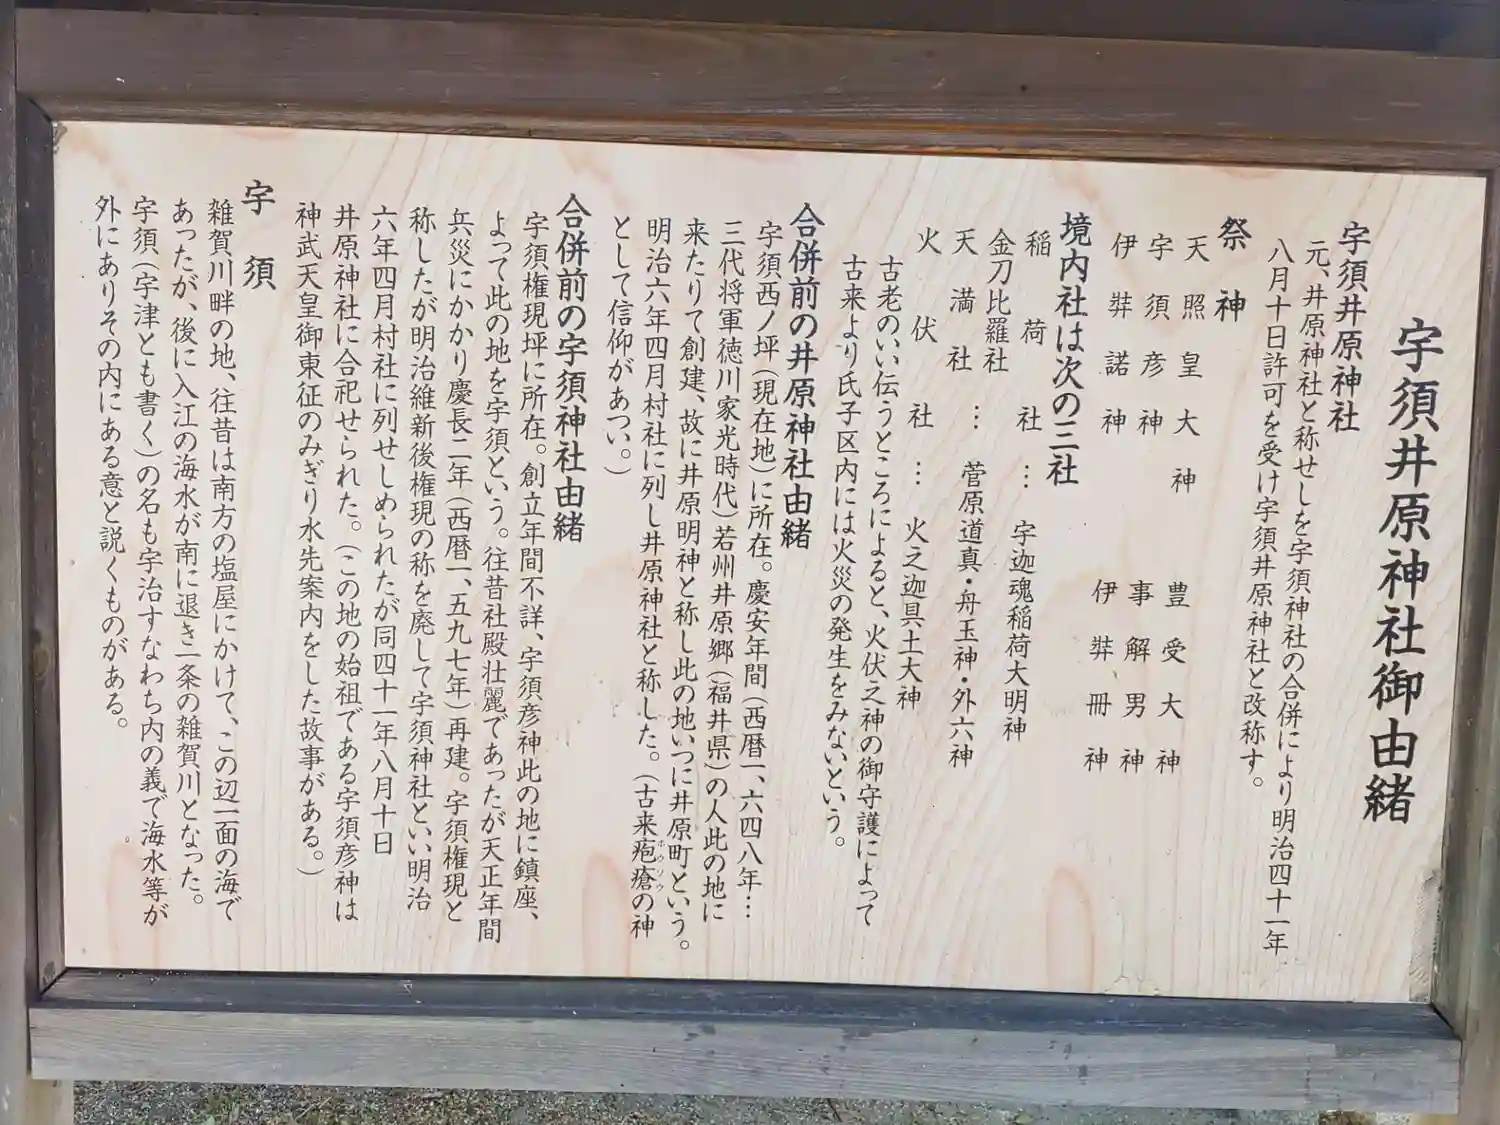 宇須井原神社御由緒
宇須井原神社
元、井原神社と称せしを宇須神社の合併により明治四十一年
八月十日許可を受け宇須井原神社と改称す。
祭神
天照皇大神　豊受大神
宇須彦神　事解男神
伊弉諾神　伊弉冊神
境内社は次の三社
稲荷社…宇迦魂稲荷大明神
金刀比羅社
天満社…菅原道真・舟玉神・外六神
火伏社…火之迦具土大神
古老のいい伝うところによると、火伏之神の御守護によって
古来より氏子区内には火災の発生をみないという。
合併前の井原神社由緒
宇須西ノ坪（現在地）に所在。慶安年間（西暦一、六四八年…
三代将軍徳川家光時代）若州井原郷（福井県）の人此の地に
来たりて創建、故に井原明神と称し此の地いつに井原町という。
明治六年四月村社に列し井原神社と称した。（古来疱瘡の神
ホウソウ
として信仰があつい。）
合併前の宇須神社由緒
宇須権現坪に所在。創立年間不詳、宇須彦神此の地に鎮座、
よって此の地を宇須という。往昔社殿壮麗であったが天正年間
兵災にかかり慶長二年（西暦一、五九七年）再建。宇須権現と
称したが明治維新後権現の称を廃して宇須神社といい明治
六年四月村社に列せしめられたが同四十一年八月十日
井原神社に合祀せられた。（この地の始祖である宇須彦神は
神武天皇御東征のみぎり水先案内をした故事がある。）
宇須
雑賀川畔の地、往昔は南方の塩屋にかけて、この辺一面の海で
あったが、後に入江の海水が南に退き一条の雑賀川となった。
宇須（宇津とも書く）の名も宇治すなわち内の義で海水等が
外にありその内にある意と説くものがある。